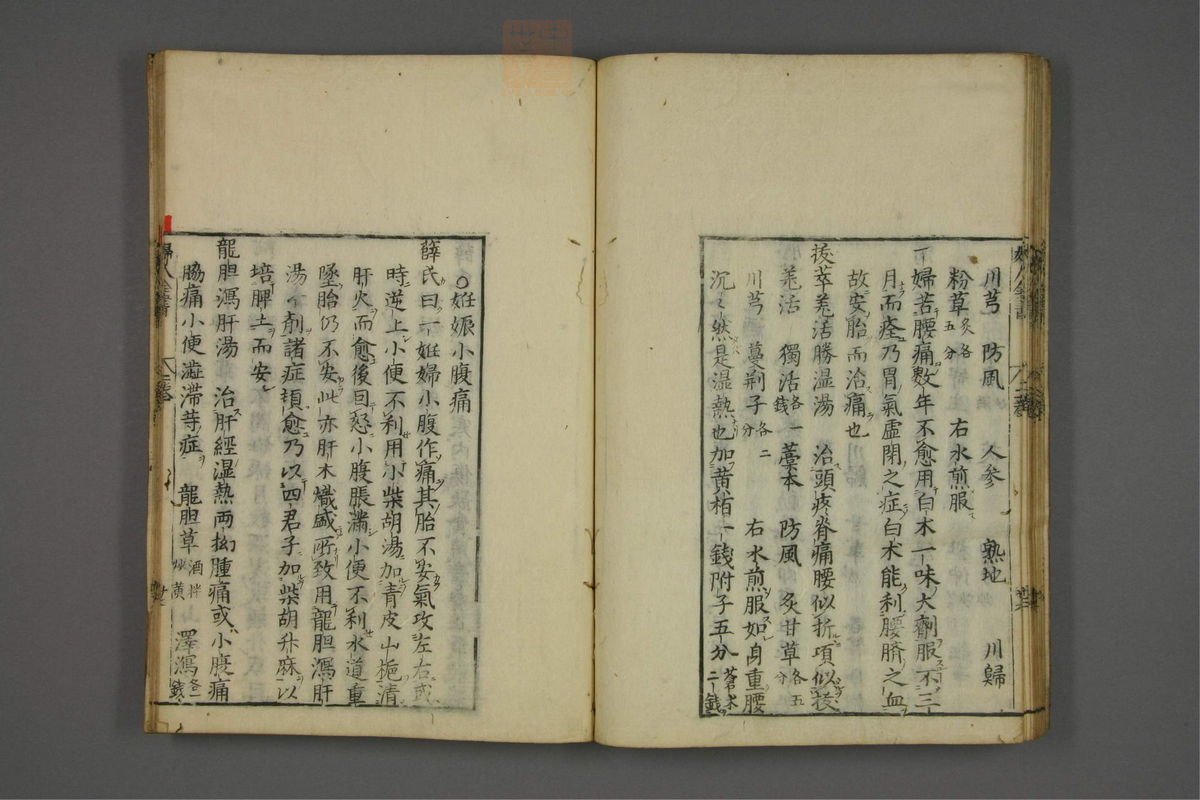 川芎　防風　人参　熟地　川歸
粉草 炙各五分　右水煎服
一婦苦腰痛数年不愈用白朮一味大劑服不三
月而痊乃胃氣虚閉之症白朮能利腰臍之血
故安胎而治痛也
抜萃羗活勝湿湯　治頭疼脊痛腰似折項似抜
羗活　獨活 各一錢　藁本　防風　炙甘草 各五分
川芎　蔓荆子 各二分　右水煎服如身重腰
沉々然是湿熱也加黄栢一錢附子五分 蒼朮二錢
○姙娠小腹痛
薛氏曰一姙婦小腹作痛其胎不安氣攻左右或
時逆上小便不利用小柴胡湯加青皮山梔清
肝火而愈後因怒小腹脹滿小便不利水道重
墜胎仍不安此亦肝木熾盛所致用龍胆瀉肝
湯一劑諸症頓愈乃以四君子加柴胡升麻以
培脾土而安
龍胆瀉肝湯　治肝經湿熱両拗腫痛或小腹痛
脇痛小便澁滞等症　龍胆草 酒拌炒黄　澤瀉 各一錢
婦人全書